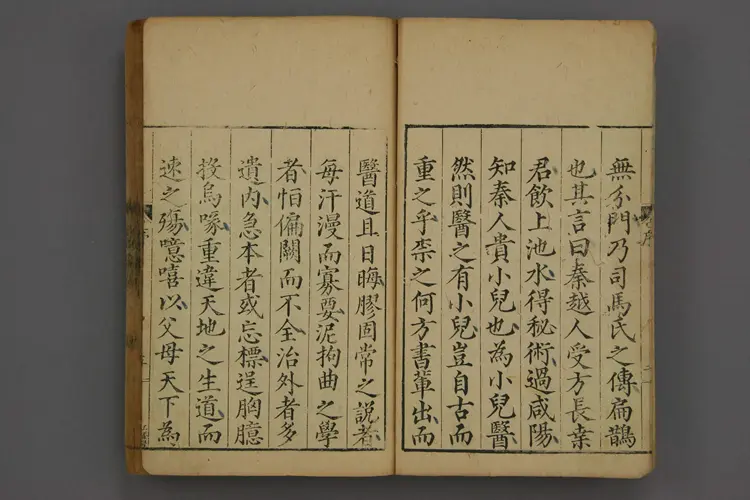 無分門乃司馬氏之傳扁鵲
也其言曰秦越人受方長桒
君飲上池水得秘術過咸陽
知秦人貴小兒也為小兒醫
然則醫之有小兒豈自古而
重之乎柰之何方書輩出而
醫道且日晦膠固常之説者
每汗漫而寡要泥拘曲之學
者怕偏闗而不全治外者多
遺内急本者或忘標逞胸臆
投烏喙重違天地之生道而
速之殤噫嘻以父母天下為
序